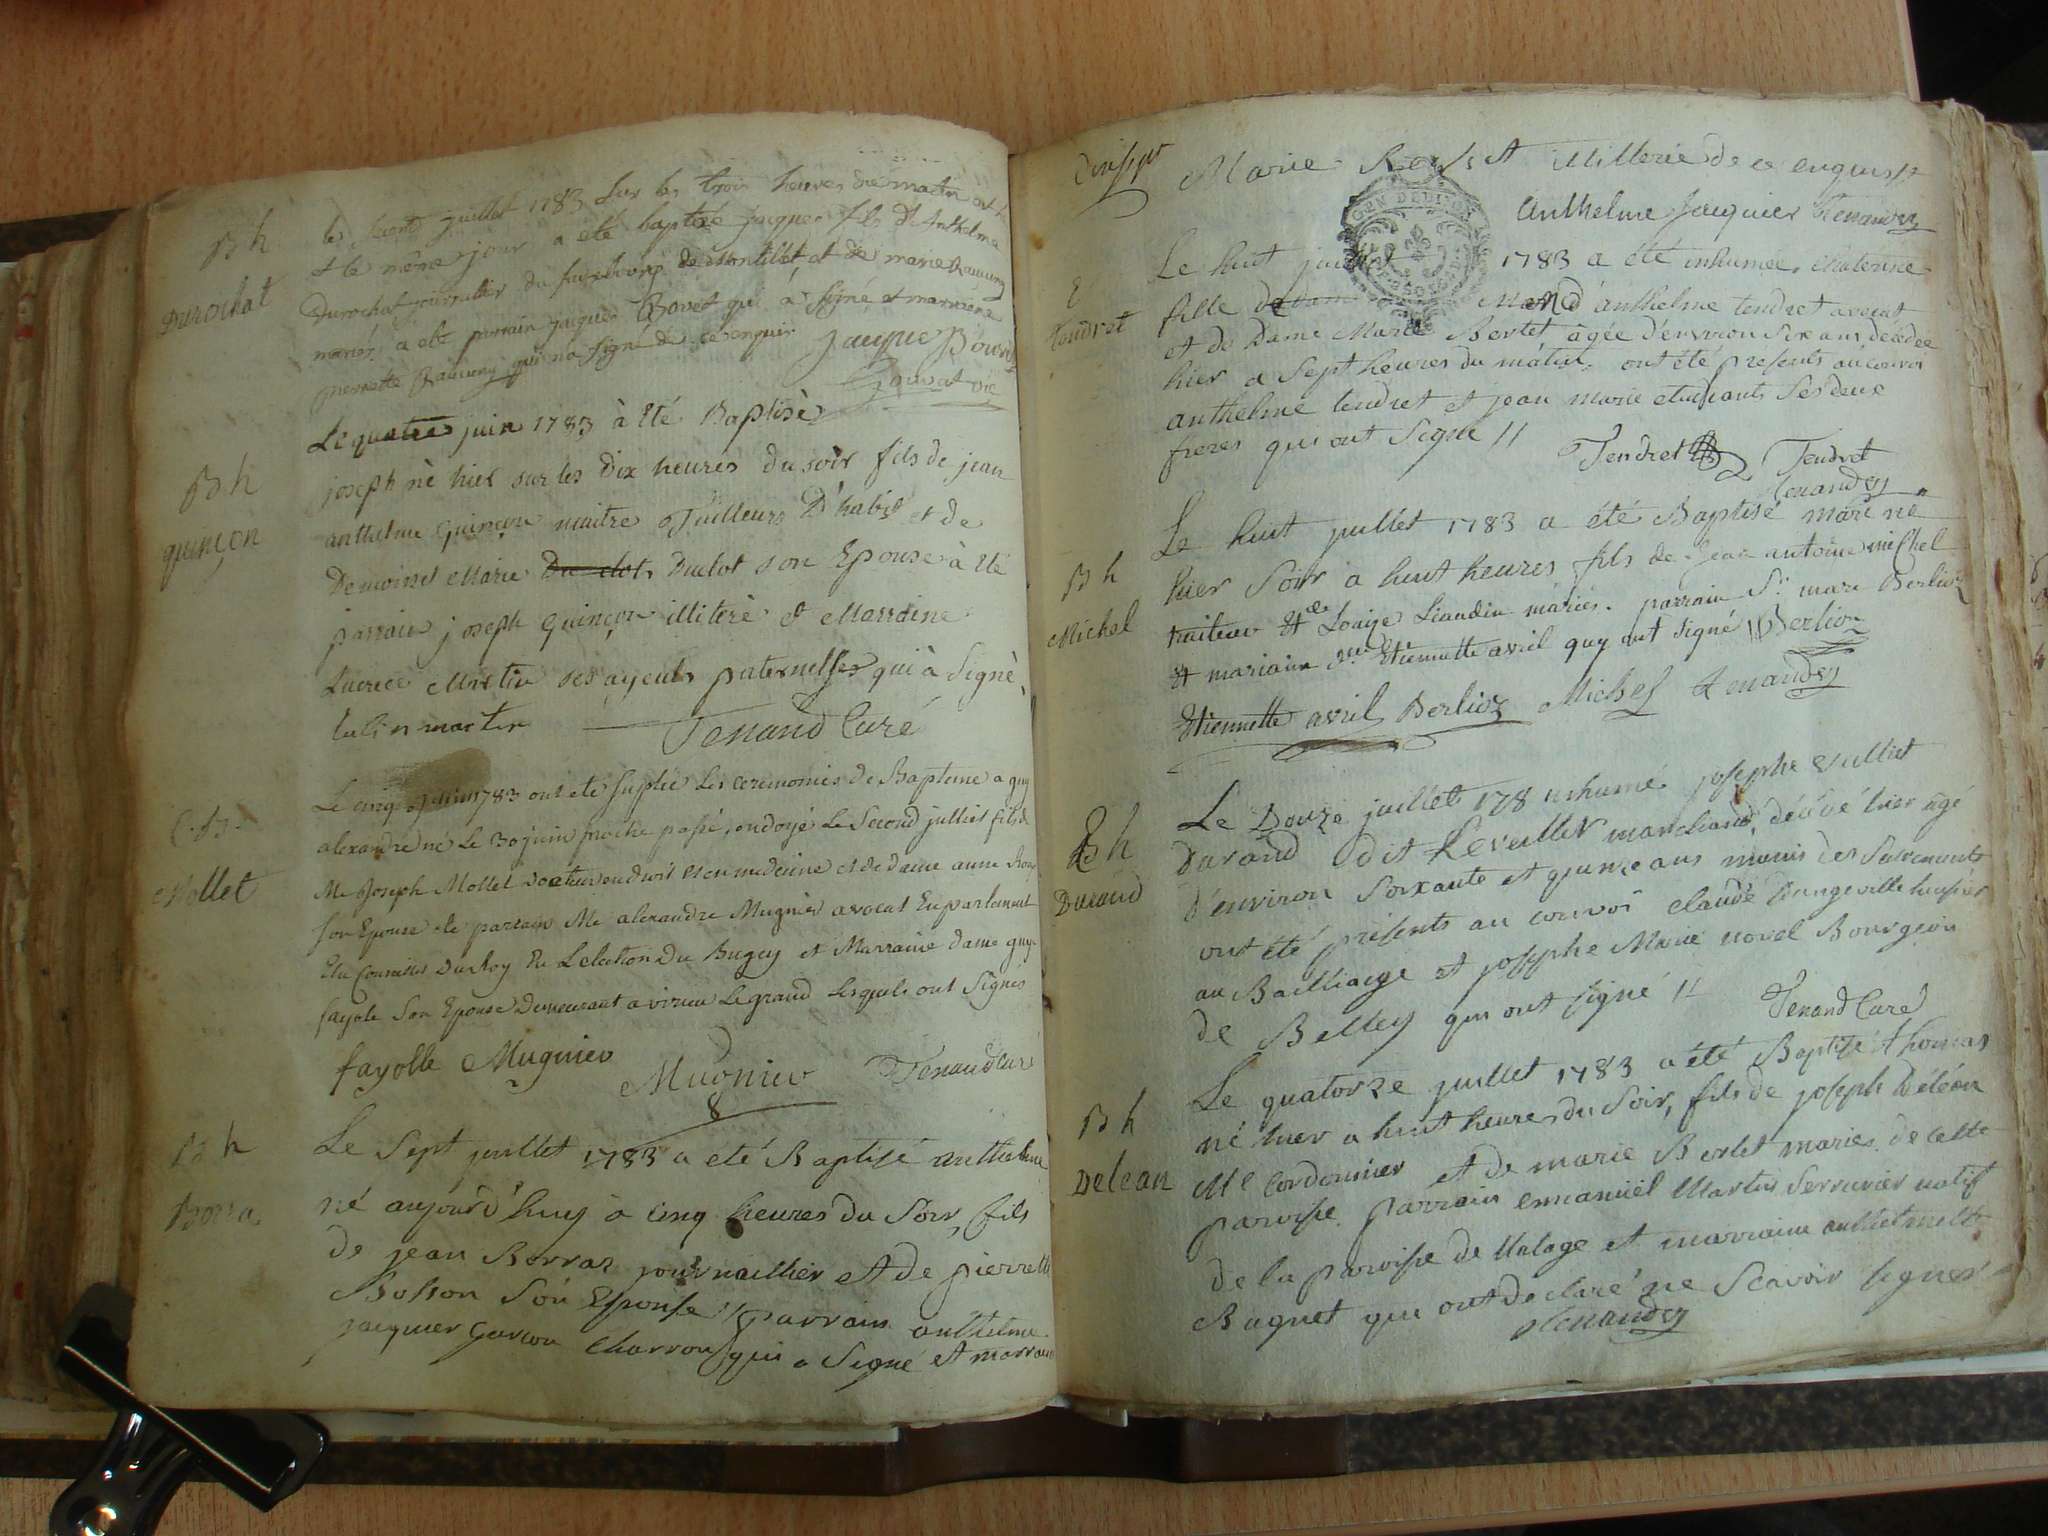 B h
Durochat
le second juillet 1783 sur les trois heures du matin est né
et le même jour a été baptisé jacques fils d'Anthelme
Durochat journallier du fauxbourg de et de marie
mariés, a été parrain jacques Bovet qui a signé et marraine
pernette qui n'a signé de ce enquise
jacque
vic
B h
quinçon
Le quatre juin 1783 à été Baptisè
joseph nè hier sur les dix heures du soir fils de jean
anthelme quinçon maitre Tailleurs D'habit et de
Demoisel Marie Duclot son Epouse à été
parrain joseph quinçon illiterè et Marraine
Martin ses ayeuls paternelles qui à signè,
martin Tenand Curé
Mollet
Le cinq 1783 ont été suplée les ceremonies de Bapteme a guy
alexandre né le 30 juin proche passé, ondoyé le second julliet fils de
Me Joseph Mollet Docteur en droit et en medecine et de dame anne
son Epouse été parrain Me alexandre Mugnier avocat En parlement
Elu Du Roy En Lelection Du Bugey et Marraine dame guy
fayole son Epouse Demeurant a virieu Le grand Lesquels ont signés
fayolle Mugnier
Mugnier Tenand Curé
B h
Borra
Le sept juillet 1783 a été Baptisé anthelme
né aujourd'huy à cinq heures du soir, fils
de jean Borraz journaillier et de pierrette
Bolson son Epouse parrain anthelme
jacquier garcon charron qui a signé et marraine
Marie et Millerie de ce enquise
Anthelme jacquier Tenand
E
Tendret
Le huit juillet 1783 a été inhumée, Caterine
fille d'anthelme tendret avocat
et de Dame Marie Bertet, agée d'environ six ans décédée
hier a sept heures du matin, ont été presents au convoi
anthelme tendret et jean marie etudiants ses deux
freres qui ont signé //
Tendret Tendret
Tenand
B h
Michel
Le huit juillet 1783 a été Baptisé marc né
hier soir à huit heures fils de jean antoine michel
traiteur et de Louise Liaudin mariés. parrain Sr. marc Berlioz
et mariaine Etiennette avril quy ont signé // Berlioz
Etiennette avril Berlioz Michel Tenand
h
Durand
Le Douze juillet 178 inhumé josephe
Durand dit Leveiller marchand, décédé hier agé
d'environ soixante et quinze ans munis des sacrements
ont été présents au convoi claude Dangeville huissier
au Bailliage et josephe Marie novel Bourgeois
de Belley qui ont signé //
Tenand Curé
B h
Delean
Le quatorze juillet 1783 a été Baptisé thomas
né hier a huit heures du soir, fils de joseph Deléan
Me Cordonnier et de marie Bertet mariés de cette
paroisse. parrain emmanuel Martin serrurier natif
de la paroisse de et marraine anthelmette
Buguet qui ont declaré ne scavoir signer
Tenand